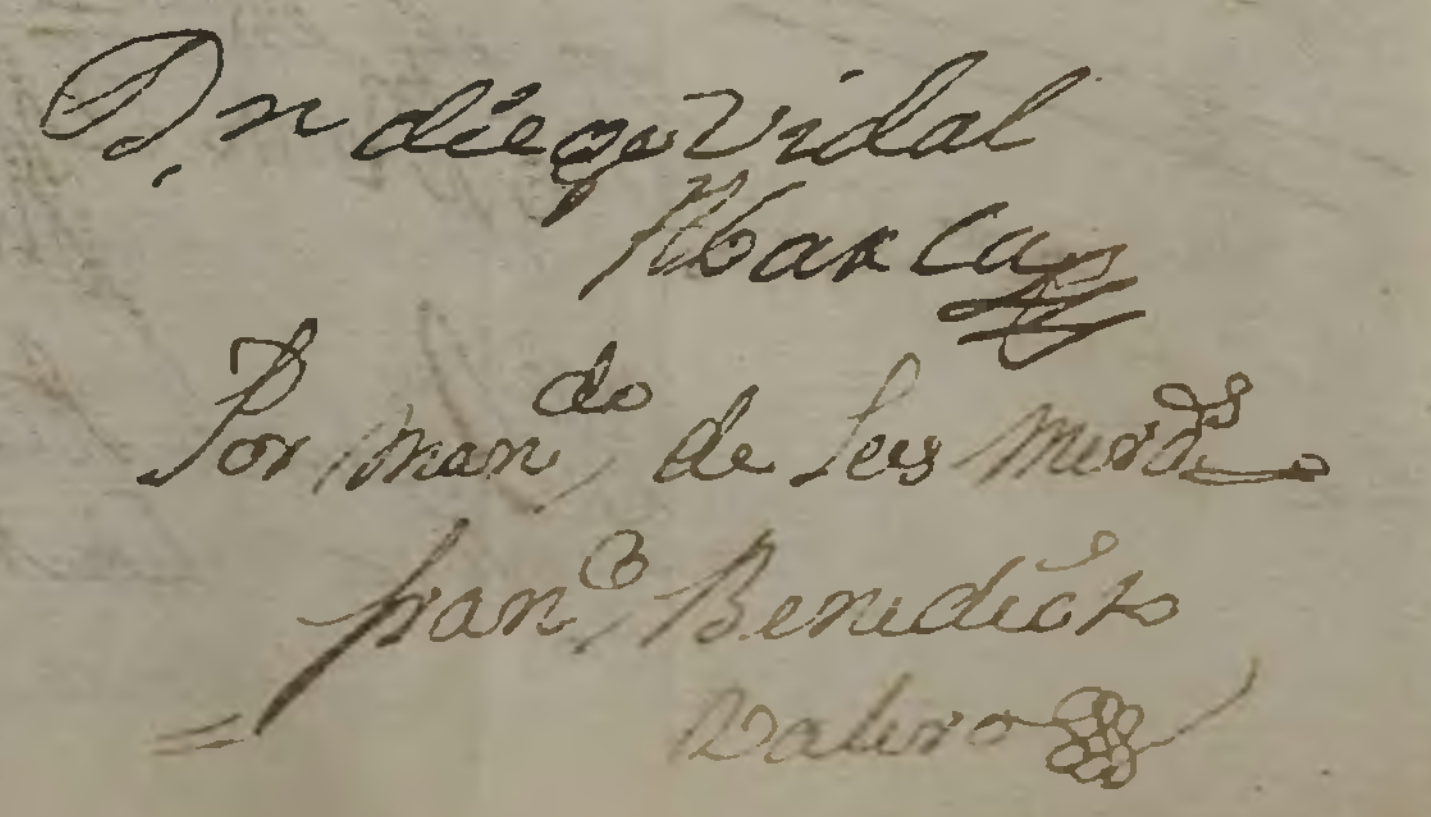 Dn diego Vidal
Abarca
Por man.do de sus mrds
fran.co Benedicto
Valero